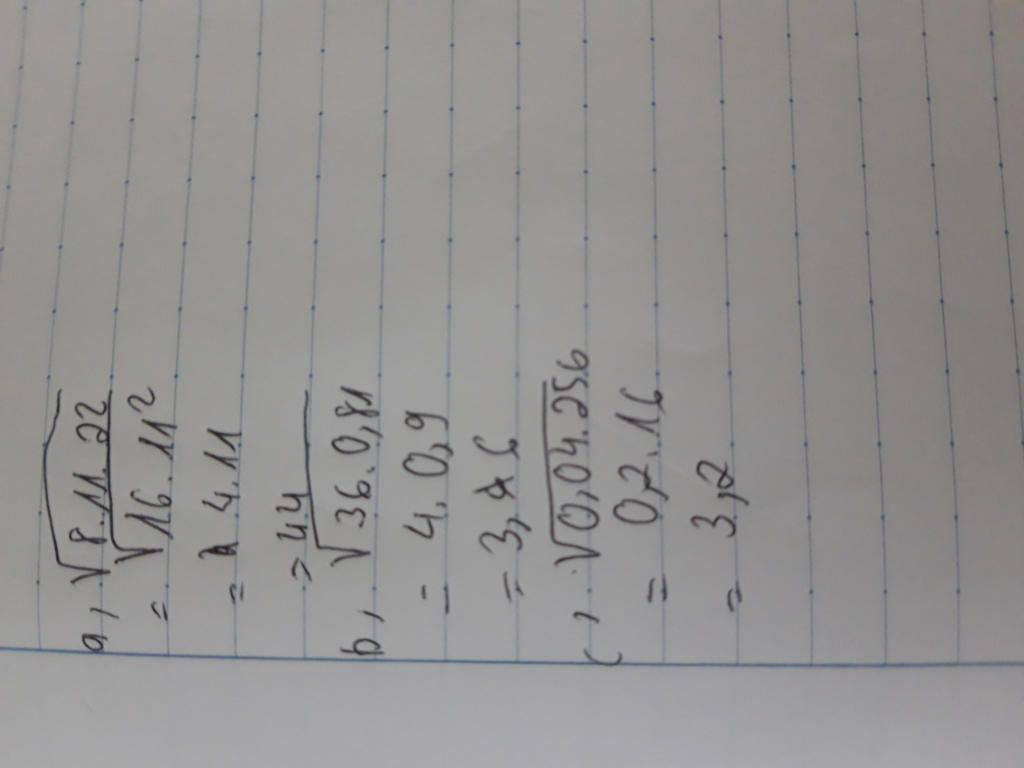 a, √8.11.22
= √16.11²
= 4.11
= 44
b, √36.0,81
= 4.0,9
= 3,6
c, √0,04.256
= 0,2.16
= 3,2